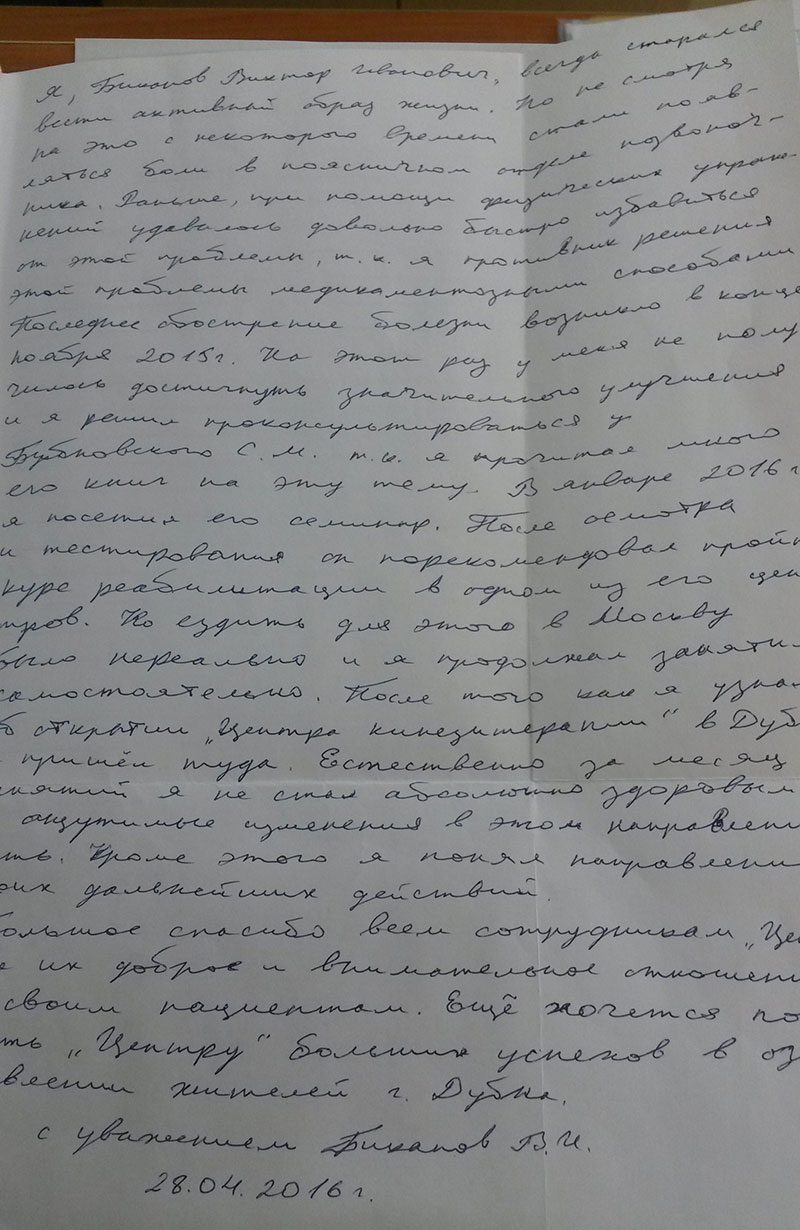 Я, Биканов Виктор Иванович, всегда старался
вести активный образ жизни. Но не смотря
на это с некоторого времени стали появ-
ляться боли в поясничном отделе позвоноч-
ника. Раньше, при помощи физических упраж-
нений удавалось довольно быстро избавиться
от этой проблемы, т.к. я противник решения
этой проблемы медикаментозными способами
Последнее обострение болезни возникло в конце
ноября 2015г. На этот раз у меня не полу
чилось достичнуть значительного улучшения
и я решил проконсультироваться у
Бубновского С.М. т.к. я прочитал много
его книг на эту тему. В январе 2016 г
я посетил его семинар. После осмотра
и тестирования он порекомендовал прой
курс реабилитации в одном из его цен
тров. Но ездить для этого в Москву
было нереально и я продолжал заняти
самостоятельно. После того как я узнал
б открытии „Центра кинезитерапии" в Дуб
пришёл туда. Естественно за месяц
нятий я не стал абсолютно здоровым
ощутимые изменения в этом направлени
ть. Кроме этого я понял направлени
оих дальнейших действий.
большое спасибо всем сотрудникам „Це
их доброе и внимательное отношени
своим пациентам. Ещё хочется по
ть „Центру" больших успехов в оз
влении жителей г. Дубна.
с уважением Биканов В.И.
28.04.2016г.